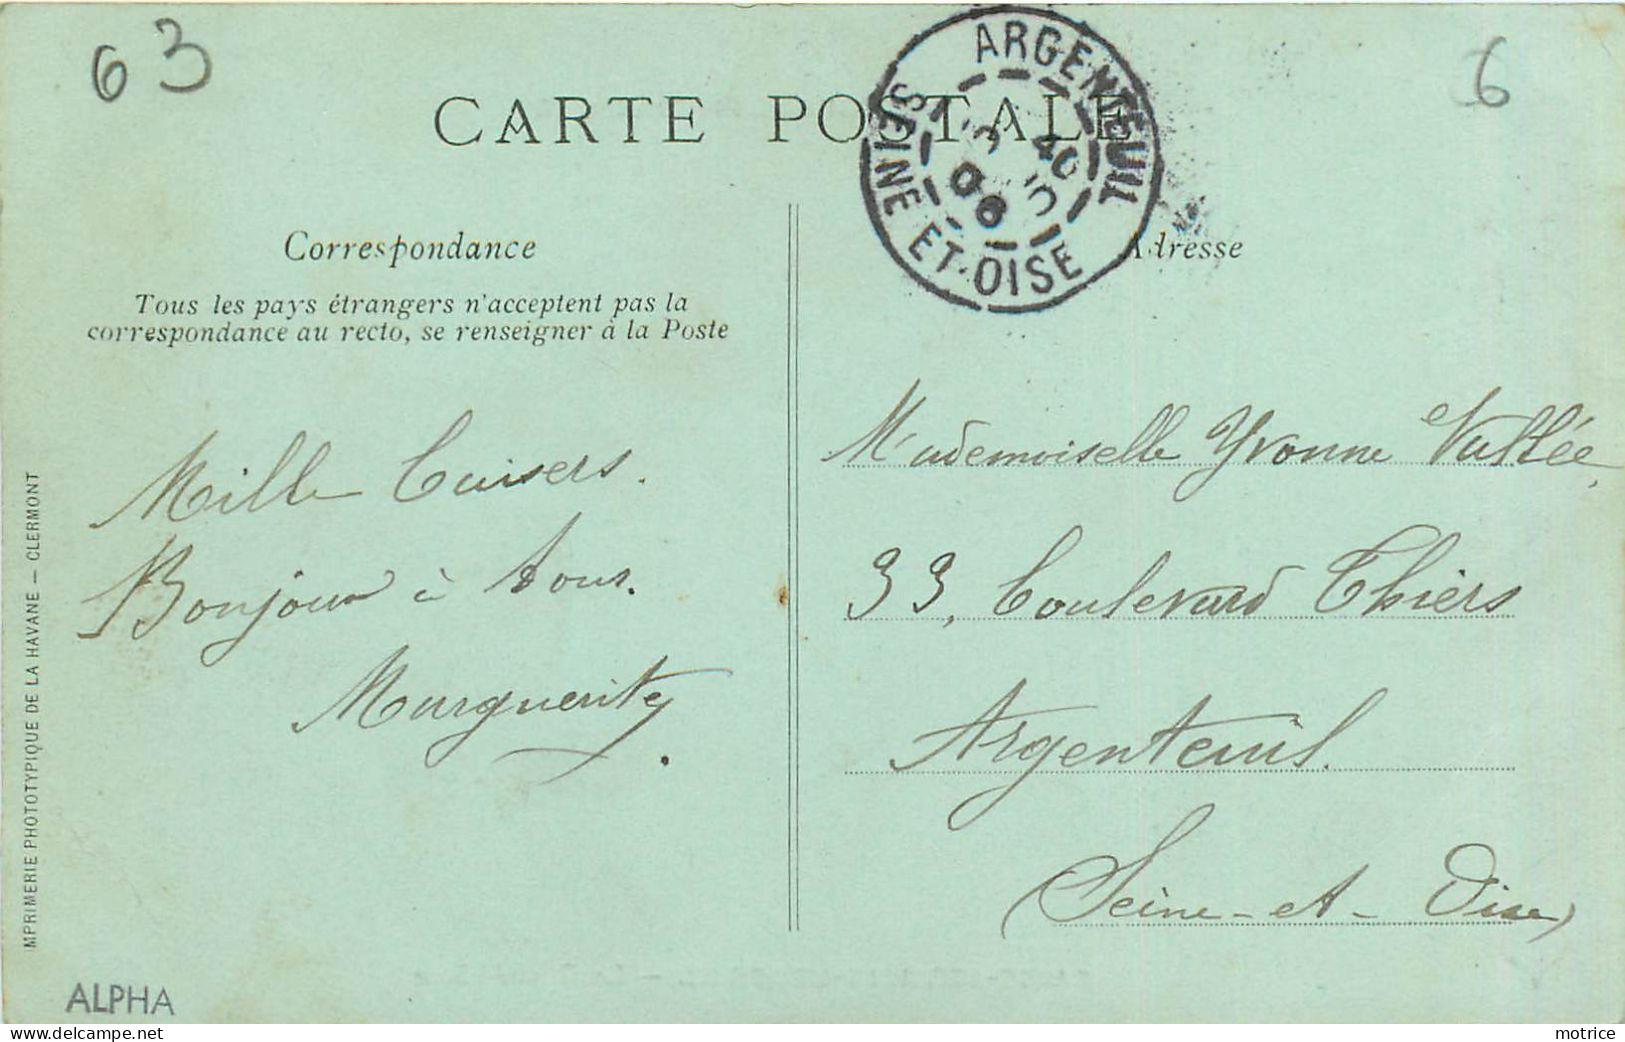 63
6
CARTE POSTALE
ARGENTEUIL
SEINE-ET-OISE
3 40
06
Correspondance
Adresse
Tous les pays étrangers n'acceptent pas la
correspondance au recto, se renseigner à la Poste
Mille Baisers.
Bonjour à tous.
Marguerite.
Mademoiselle Yvonne Vallée,
33, Boulevard Thiers
Argenteuil.
(Seine-et-Oise)
MPRIMERIE PHOTOTYPIQUE DE LA HAVANE — CLERMONT
ALPHA
www.delcampe.net
motrice